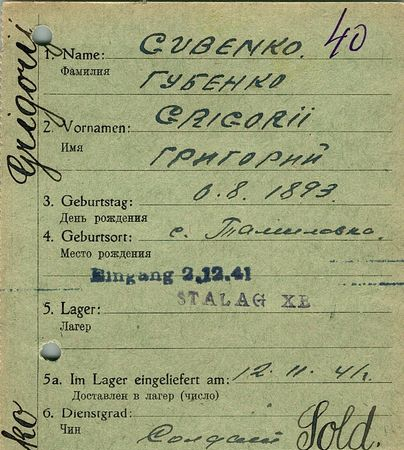 40
1. Name: GUBENKO.
Фамилия ГУБЕНКО
2. Vornamen: GRIGORII
Имя ГРИГОРИЙ
3. Geburtstag: 0.8. 1893.
День рождения
4. Geburtsort: с. Томиловка.
Место рождения
Eingang 2.12.41
STALAG XB
5. Lager:
Лагер
5a. Im Lager eingeliefert am: 12. 11. 41г.
Доставлен в лагер (число)
6. Dienstgrad: Sold.
Чин Солдат
Grigorij
ko